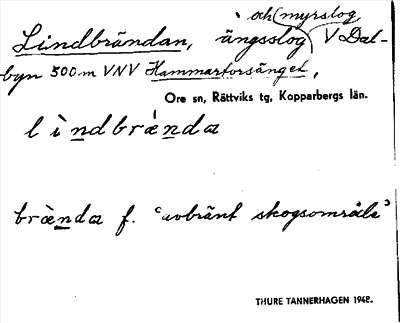 Lindbrändan, ängsslog (och myrslog) V Dal-
byn 500 m VNV Hammarforsänget,
Ore sn, Rättviks tg, Kopparbergs län.
lìndbrǽnda
brǽnda f. "avbränt skogsområde"
THURE TANNERHAGEN 1948.